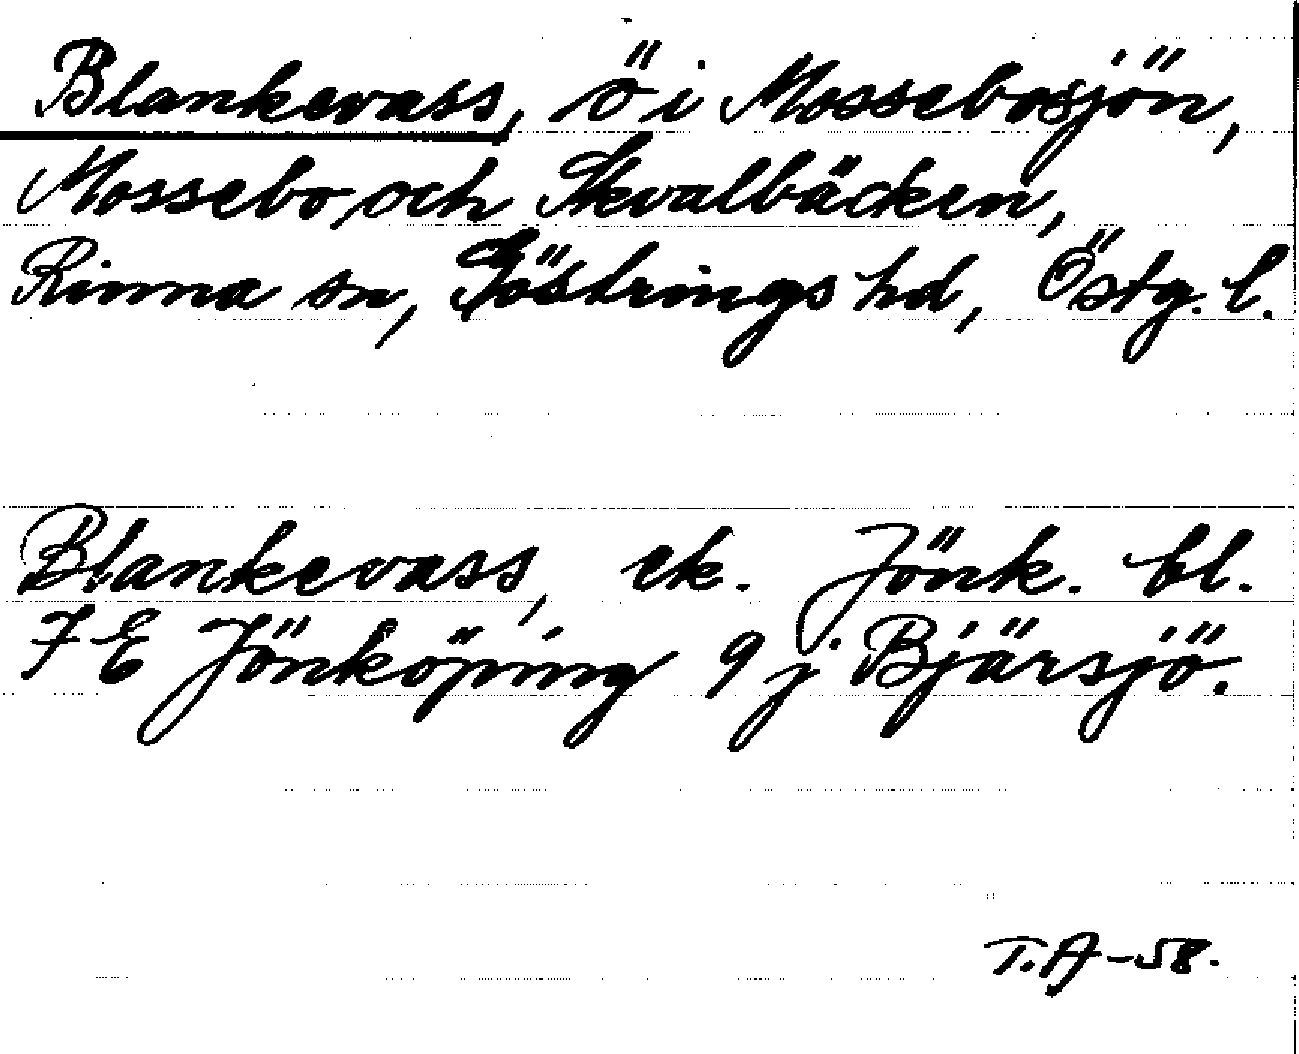 Blankevass, ö i Mossebosjön,
Mossebo, och Skvalbäcken,
Rinna sn, Göstrings hd, Östg. l.
Blankevass, ek. Jönk. bl.
7 E Jönköping 9 j Bjärsjö.
T.A-58.